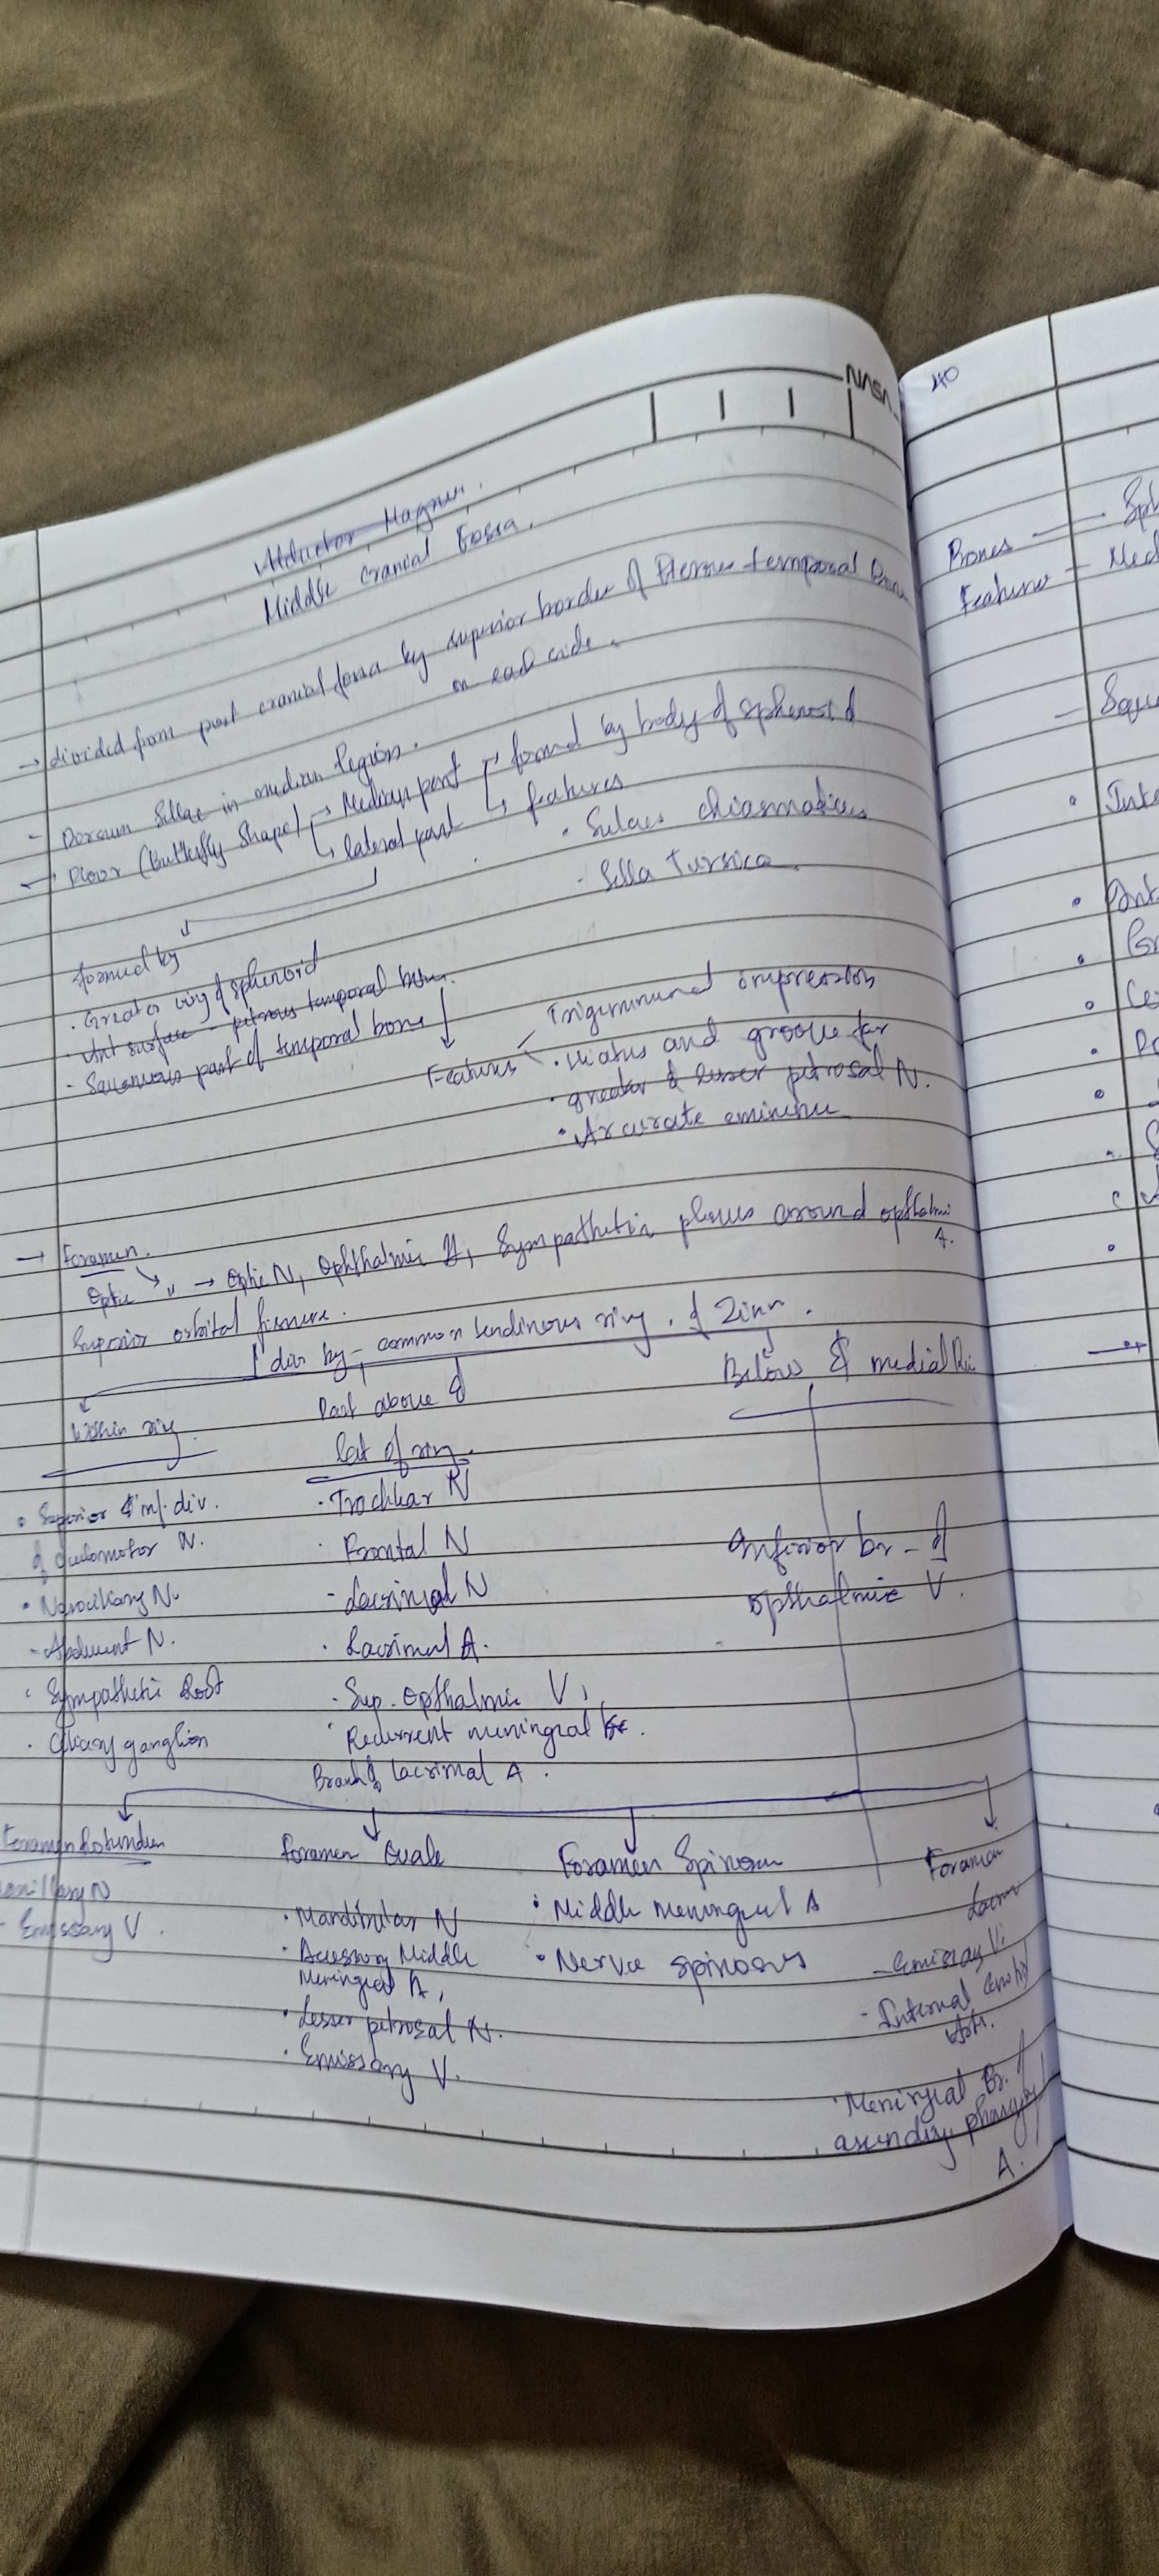 NASA
Adductor Magnus.
Middle cranial Fossa.
→ divided from post cranial fossa by superior border of Petrous temporal Bone
on each side.
- Dorsum Sellae in median region.
→ Floor (Butterfly Shape) → Median part → formed by body of sphenoid
↳ lateral part ↳ features
· Sulcus chiasmaticus
· Sella Tursica
formed by
· Greater wing of sphenoid
· Ant surface - petrous temporal bone.
- Squamous part of temporal bone
Features
Trigeminal impression
· Hiatus and groove for
· greater & lesser petrosal N.
· Arcurate eminence
→ Foramen.
Optic " → Optic N, Ophthalmic A, Sympathetic plexus around opthalmic
A.
Superior orbital fissure.
div by - common tendinous ring. of Zinn.
Within ring.
Part above &
lat of ring.
Below & medial
• Superior & inf. div.
of oculomotor N.
• Nasociliary N.
- Abducent N.
· Sympathetic Root
· Ciliary ganglion
· Trochlear N
· Frontal N
- Lacrimal N
· Lacrimal A.
· Sup. Opthalmic V,
· Recurrent meningeal
Branch of Lacrimal A.
Inferior br - of
opthalmic V.
Foramen Rotundum
Maxillary N
- Emissary V.
Foramen Ovale
· Mandibular N
· Accessory Middle
Meningeal A,
· Lesser petrosal N.
· Emissary V.
Foramen Spinosum
• Middle Meningeal A
• Nerve spinosus
Foramen
- Emissary V.
- Internal
· Meningeal Br. of
ascending pharyngeal
A.
40
Bones
Features